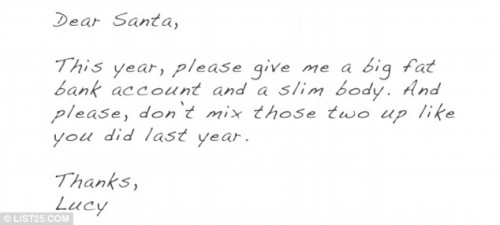 Dear Santa,
This year, please give me a big fat
bank account and a slim body. And
please, don't mix those two up like
you did last year.
Thanks,
Lucy
© LIST25.COM